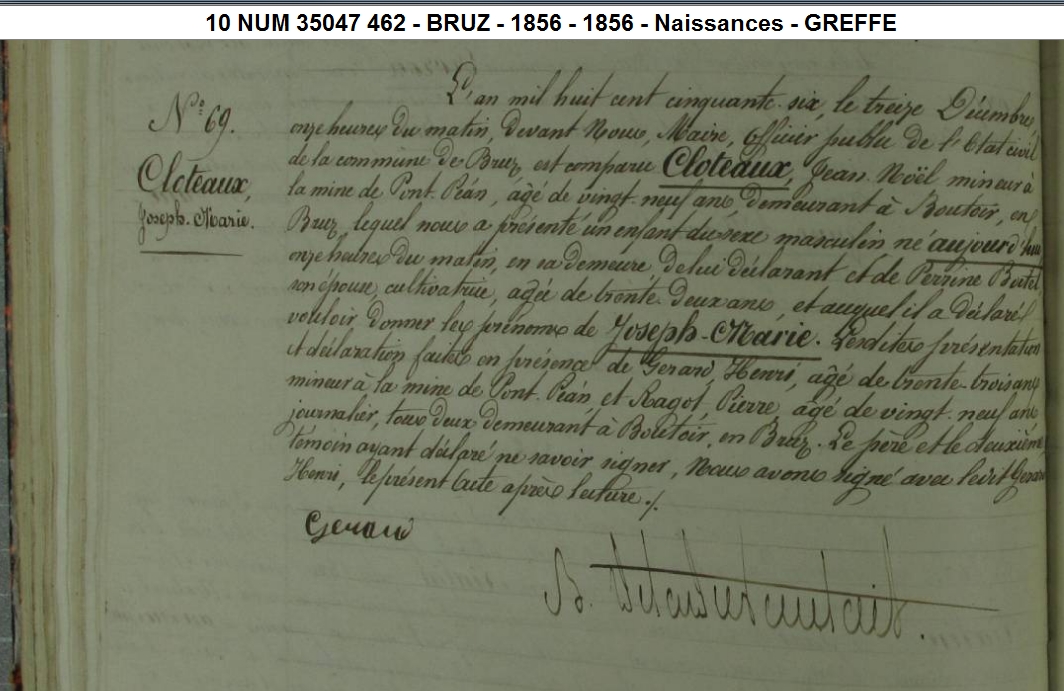 10 NUM 35047 462 - BRUZ - 1856 - 1856 - Naissances - GREFFE
N° 69.
Cloteaux,
Joseph-Marie.
L'an mil huit cent cinquante-six, le treize Décembre
onze heures du matin, devant Nous, Maire, officier public de l'Etat civil
de la commune de Bruz, est comparu Cloteaux, Jean Noël mineur à
la mine de Pont-Péan, âgé de vingt-neuf ans, demeurant à Boutoir, en
Bruz, lequel nous a présenté un enfant du sexe masculin, né aujourd'hui
onze heures du matin, en sa demeure, de lui déclarant et de Perrine Boutel
son épouse, cultivatrice, agée de trente-deux ans, et auquel il a déclaré
vouloir donner les prénoms de Joseph-Marie. Lesdites présentation
et déclaration faites en présence de Gérard, Henri, âgé de trente-trois ans
mineur à la mine de Pont-Péan, et Ragot, Pierre, âgé de vingt-neuf ans
journalier, tous deux demeurant à Boutoir, en Bruz. Le père et le deuxième
témoin ayant déclaré ne savoir signer, Nous avons signé avec ledit Gerard
Henri, le présent acte après lecture./.
Gerard
B.